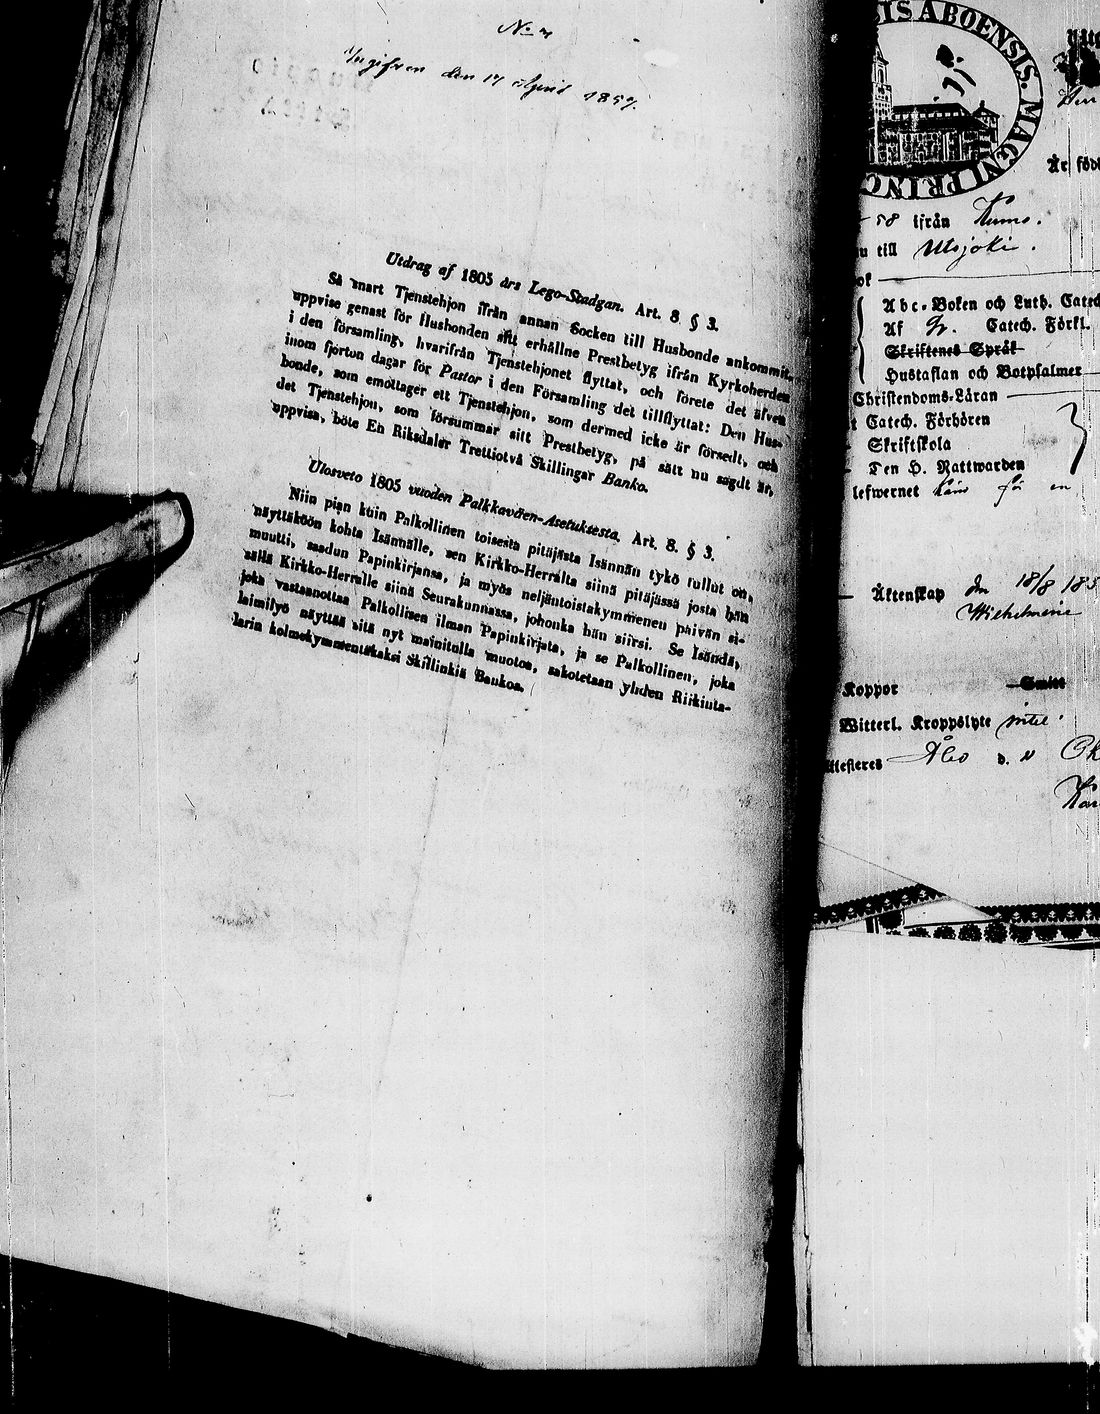 No 7
Ingifven den 17 April 1859.
Utdrag af 1805 års Lego-Stadgan. Art. 8 § 3.
Så snart Tjenstehjon ifrån annan Socken till Husbonde ankommit,
uppvise genast för Husbonden sitt erhållne Prestbetyg ifrån Kyrkoherden
i den församling, hvarifrån Tjenstehjonet flyttat, och förete det äfven
inom fjorton dagar för Pastor i den Församling det tillflyttat: Den Hus-
bonde, som emottager ett Tjenstehjon, som dermed icke är försedt, och
det Tjenstehjon, som försummar sitt Prestbetyg, på sätt nu sagdt är,
uppvisa, böte En Riksdaler Trettiotvå Skillingar Banko.
Ulosveto 1805 vuoden Palkkaväen-Asetuksesta. Art. 8. § 3.
Niin pian kuin Palkollinen toisesta pitäjästä Isännän tykö tullut on,
näyttäköön kohta Isännälle, sen Kirkko-Herralta siinä pitäjässä josta hän
muutti, saadun Papinkirjansa, ja myös neljäntoistakymmenen päivän si-
sällä Kirkko-Herralle siinä Seurakunnassa, johonka hän siirsi. Se Isändä,
joka vastaanottaa Palkollisen ilman Papinkirjata, ja se Palkollinen, joka
laimilyö näyttää sitä nyt mainitulla muotoa, sakotetaan yhden Riikinta-
larin kolmekymmentäkaksi Skillinkiä Bankoa.
SIS ABOENSIS. MAGNI PRINC
År född
58 ifrån Kumo.
till Utsjoki.
Abc-Boken och Luth. Catech
Af Catech. Förkl.
Skriftenes Språk
Hustaflan och Botpsalmer
Christendoms-Läran
Catech. Förhören
Skriftskola
Den H. Nattwarden
lefwernet
Äktenskap den 18/8 185
Wilhelmina
Koppor Smitt
Witterl. Kroppslyte intet.
Attesteres Åbo d.